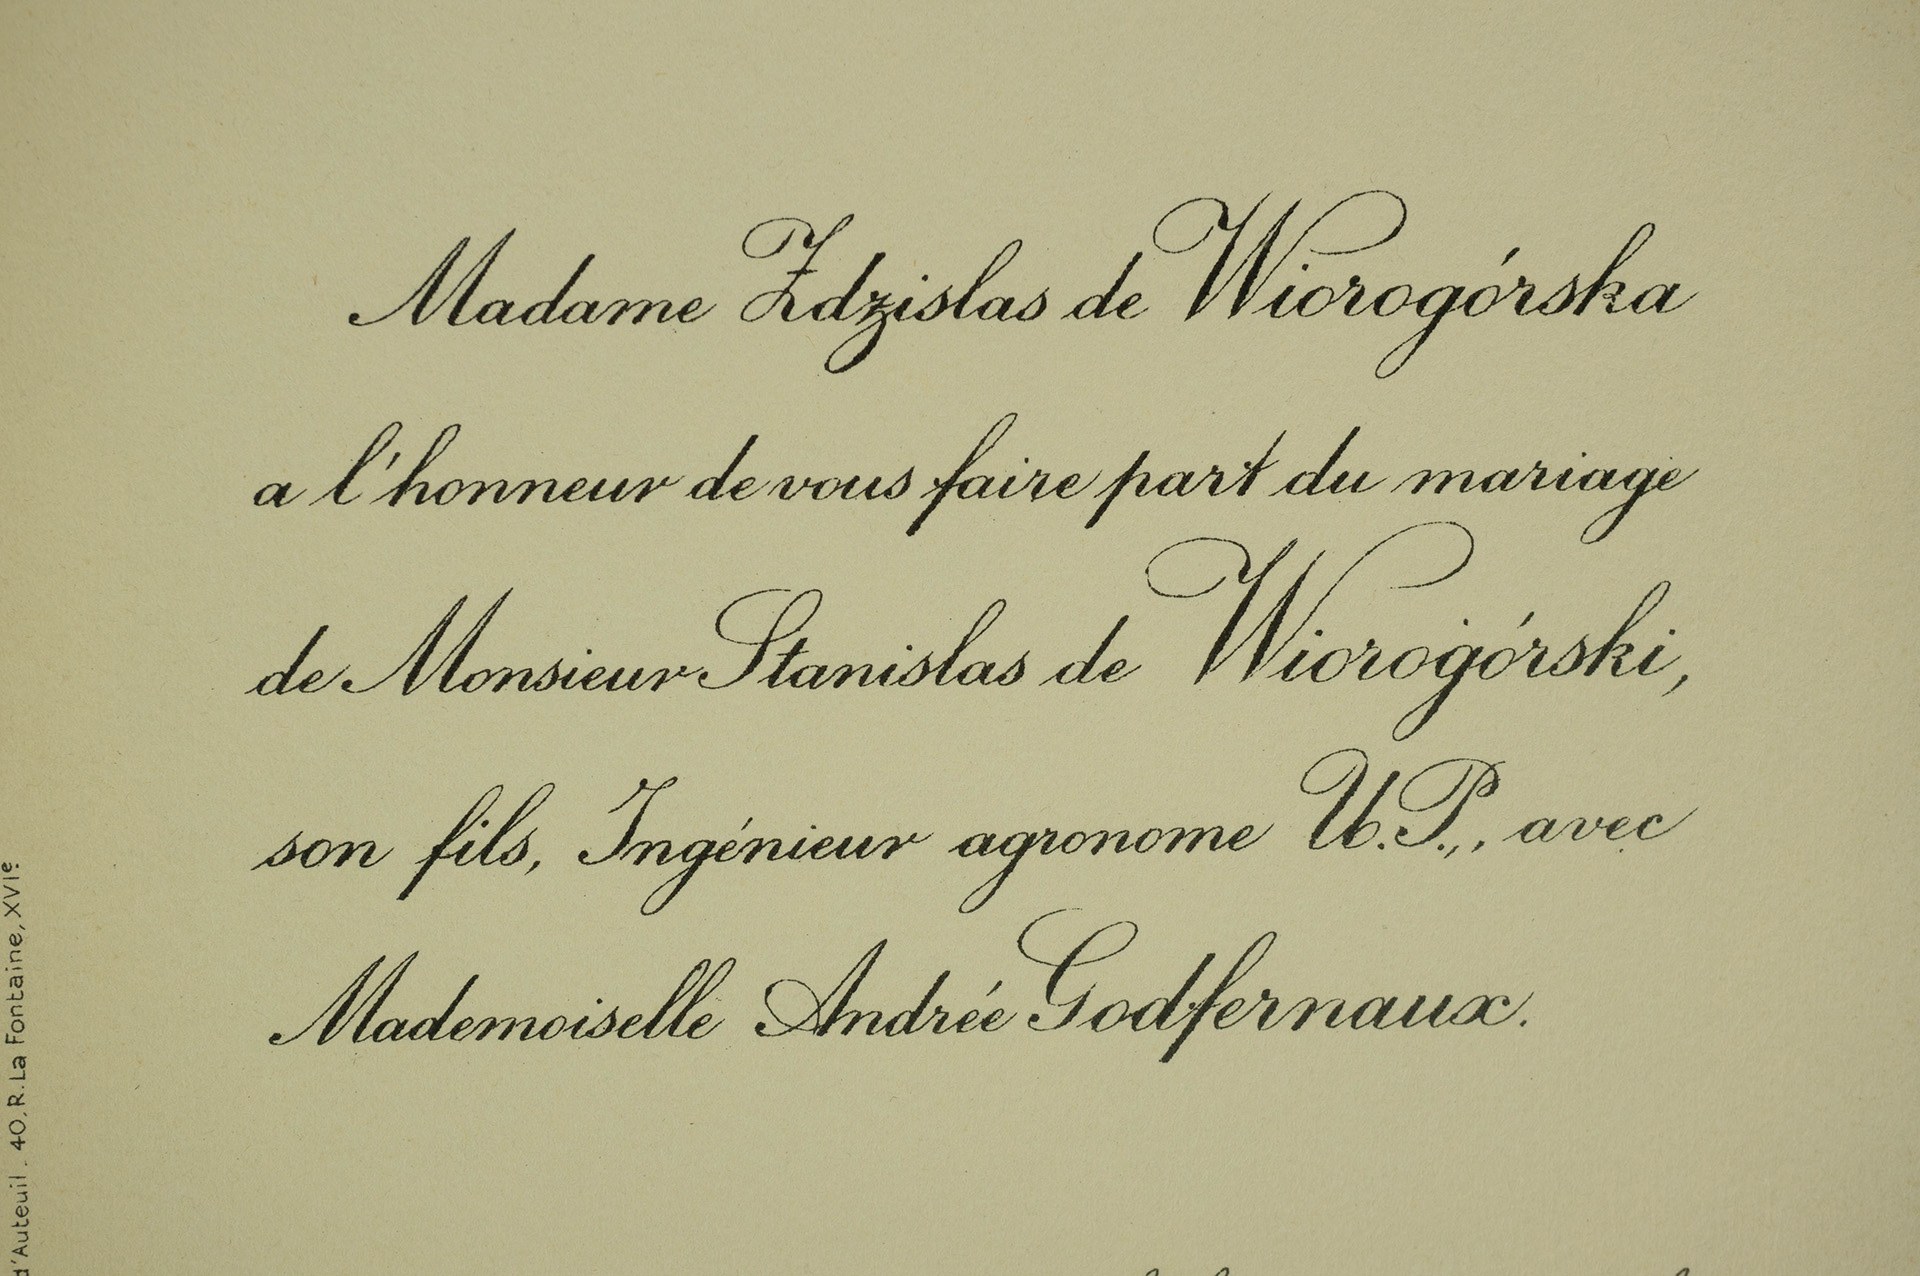 Madame Zdzislas de Wiorogórska
a l'honneur de vous faire part du mariage
de Monsieur Stanislas de Wiorogórski,
son fils, Ingénieur agronome U.P., avec
Mademoiselle Andrée Godfernaux.
d'Auteuil. 40, R. La Fontaine, XVIe